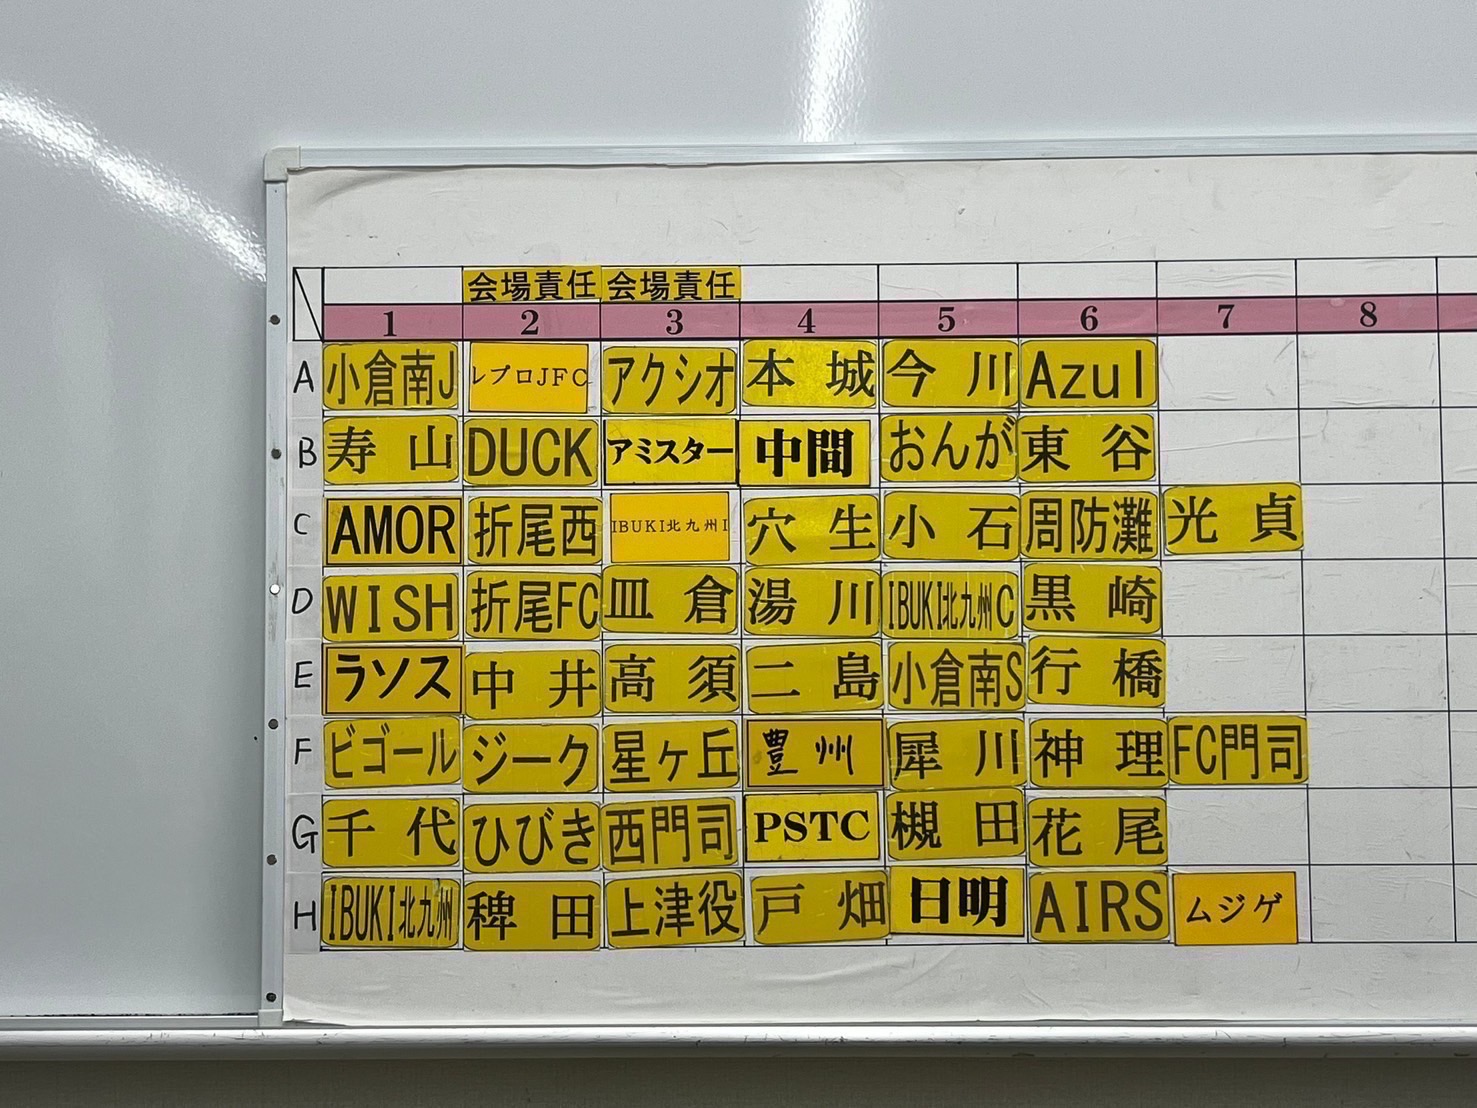 会場責任 会場責任
1 2 3 4 5 6 7 8
A 小倉南J レプロJFC アクシオ 本城 今川 Azul
B 寿山 DUCK アミスター 中間 おんが 東谷
C AMOR 折尾西 IBUKI北九州I 穴生 小石 周防灘 光貞
D WISH 折尾FC 皿倉 湯川 IBUKI北九州C 黒崎
E ラソス 中井 高須 二島 小倉南S 行橋
F ビゴール ジーク 星ヶ丘 豊州 犀川 神理 FC門司
G 千代 ひびき 西門司 PSTC 槻田 花尾
H IBUKI北九州 稗田 上津役 戸畑 日明 AIRS ムジゲ